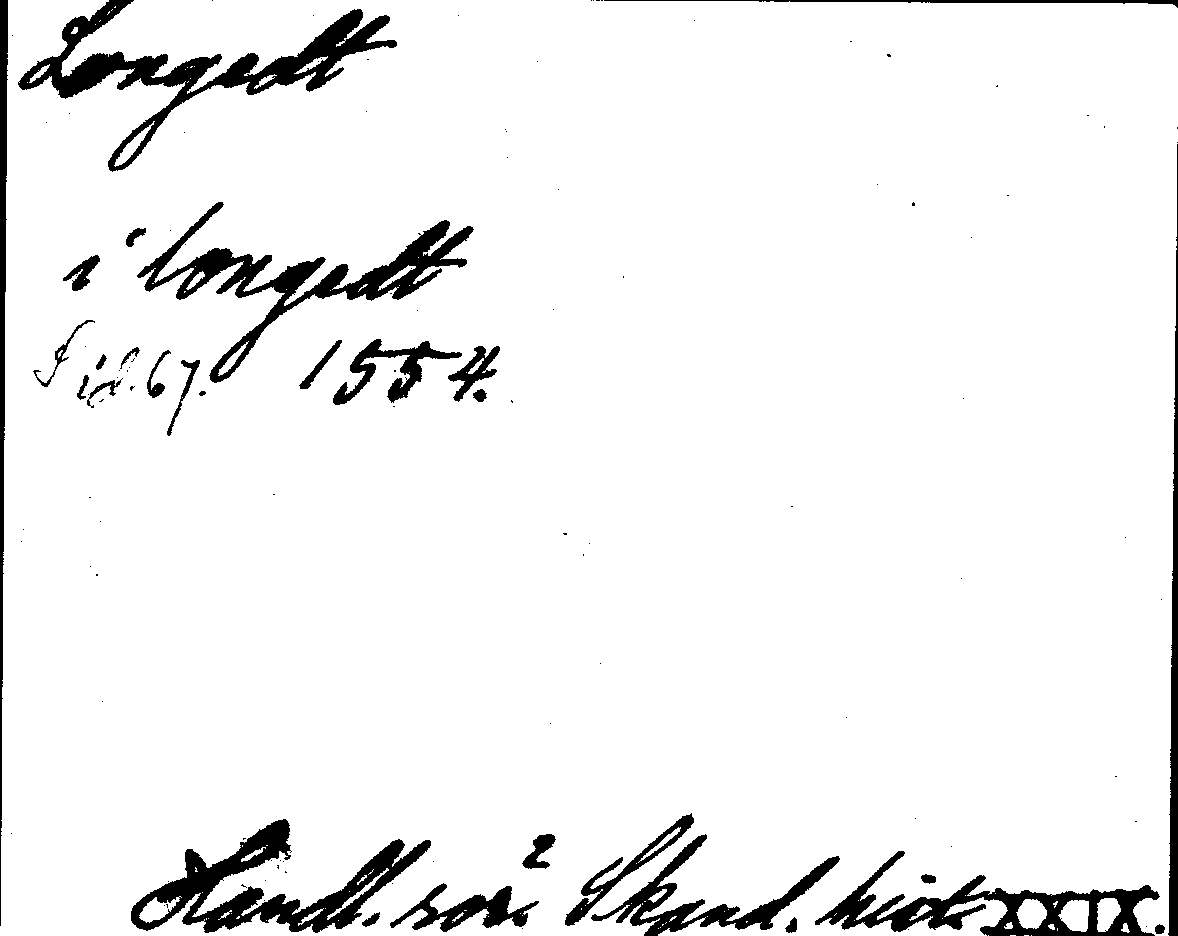 Longedt
i longedt
Sid. 67. 1554.
Handl. rör. Skand. hist. XXIX.